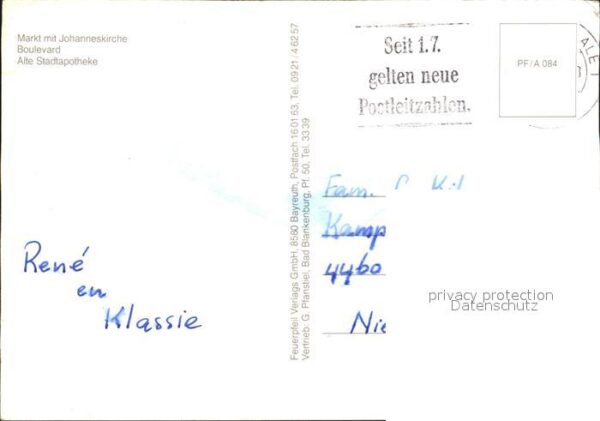 Markt mit Johanneskirche
Boulevard
Alte Stadtapotheke
Seit 1.7.
gelten neue
Postleitzahlen.
PF/A 084
ALE 1
Feuerpfeil Verlags GmbH, 8580 Bayreuth, Postfach 16 01 63, Tel. 09 21 - 4 62 57
Vertrieb: G. Pfanstiel, Bad Blankenburg, Pf. 50, Tel. 33 39
Fam.
Kamp
4460
Nie
René
en
Klassie
privacy protection
Datenschutz